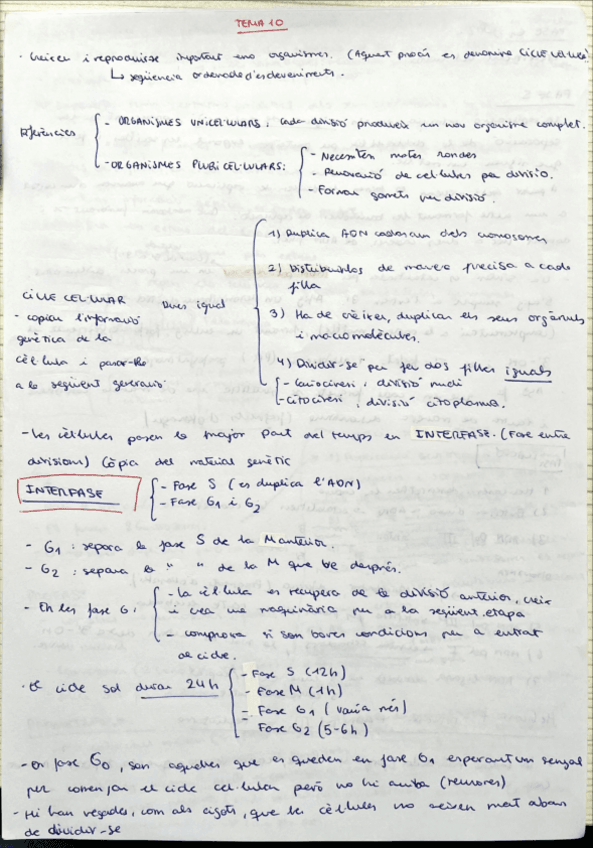 TEMA 10
· Créixer i reproduir-se important en organismes. (Aquest procés es denomina CICLE CEL·LULAR)
↳ seqüència ordenada d'esdeveniments.
- ORGANISMES UNICEL·LULARS: Cada divisió produeix un nou organisme complet.
Diferències
- ORGANISMES PLURICEL·LULARS:
- Necessiten moltes rondes
- Renovació de cèl·lules per divisió.
- Formar gàmets per divisió.
CICLE CEL·LULAR
- copiar informació
genètica de la
cèl·lula i passar-la
a la següent generació
igual
1) Duplica ADN cadascun dels cromosomes
2) Distribuir-los de manera precisa a cada
filla
3) Ha de créixer, duplicar els seus orgànuls
i macromolècules.
4) Dividir-se per fer dos filles iguals
- Cariocinesi: divisió nucli
- Citocinesi: divisió citoplasma.
- Les cèl·lules passen la major part del temps en INTERFASE. (Fase entre
divisions) Còpia del material genètic
INTERFASE
- Fase S (es duplica l'ADN)
- Fase G1 i G2
- G1: separa la fase S de la M anterior.
- G2: separa la " " de la M que ve després.
- En les fase G1
- la cèl·lula es recupera de la divisió anterior, creix
i crea una maquinària per a la següent etapa
- comprova si son bones condicions per a entrar
al cicle.
· El cicle sol durar 24h
- Fase S (12h)
- Fase M (1h)
- Fase G1 (varia més)
Fase G2 (5-6h)
- En fase G0, son aquelles que es queden en fase G1 esperant un senyal
per començar el cicle cel·lular però no hi arriba (neurones)
- Hi han vegades, com als zigots, que les cèl·lules no creixen molt abans
de dividir-se